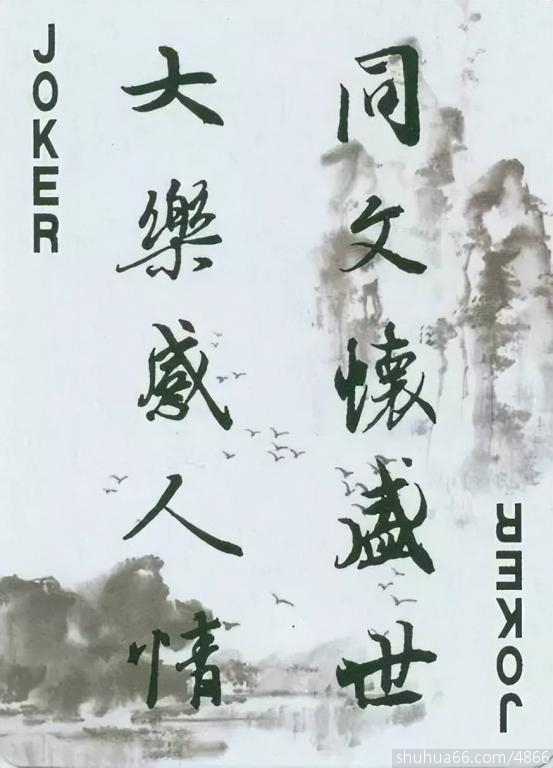 JOKER
同文懷盛世
大樂感人情
JOKER
shuhua66.com/4866